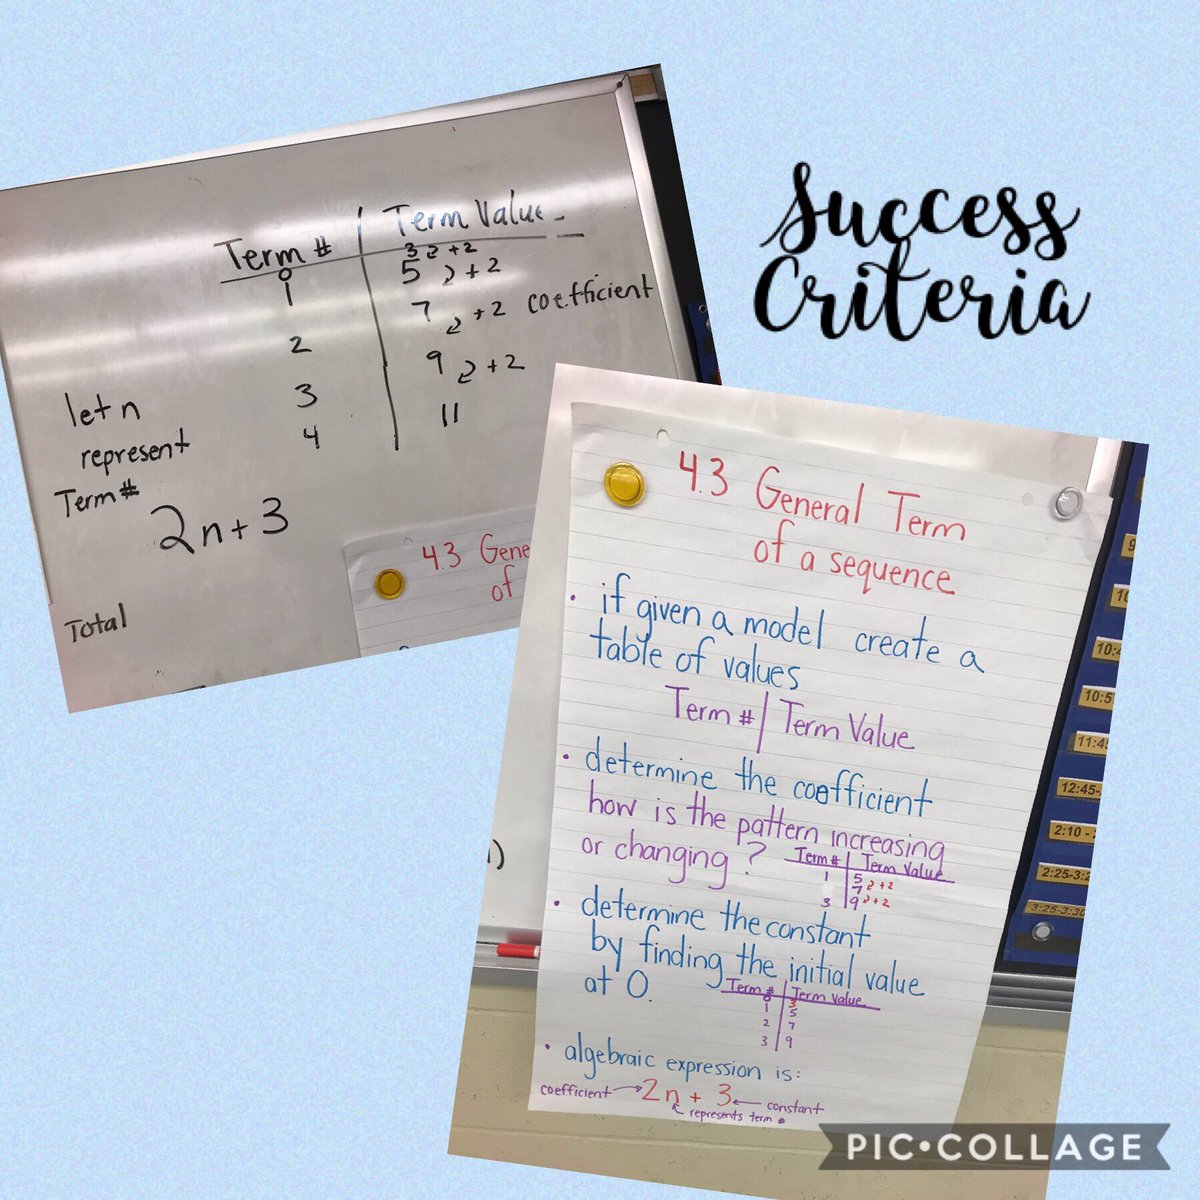 Success
Criteria
Term # Term Value
0 3 +2
1 5 +2
2 7 +2 coefficient
3 9 +2
4 11
let n
represent
Term #
2n+3
Total
4.3 Gene
of
4.3 General Term
of a sequence
• if given a model create a
table of values
Term # Term Value
• determine the coefficient
how is the pattern increasing
or changing?
Term # Term Value
1 5 +2
7 +2
3 9
• determine the constant
by finding the initial value
at 0.
Term # Term Value
0 3
1 5
2 7
3 9
• algebraic expression is:
coefficient → 2n + 3 ← constant
represents term #
10:5
11:45
12:45-
2:10 -
2:25-3:2
3:25-3:30
PIC•COLLAGE